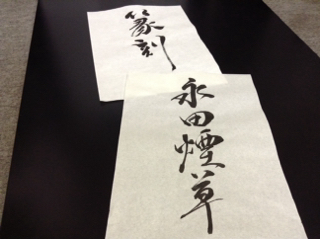 篆刻
永田煙草